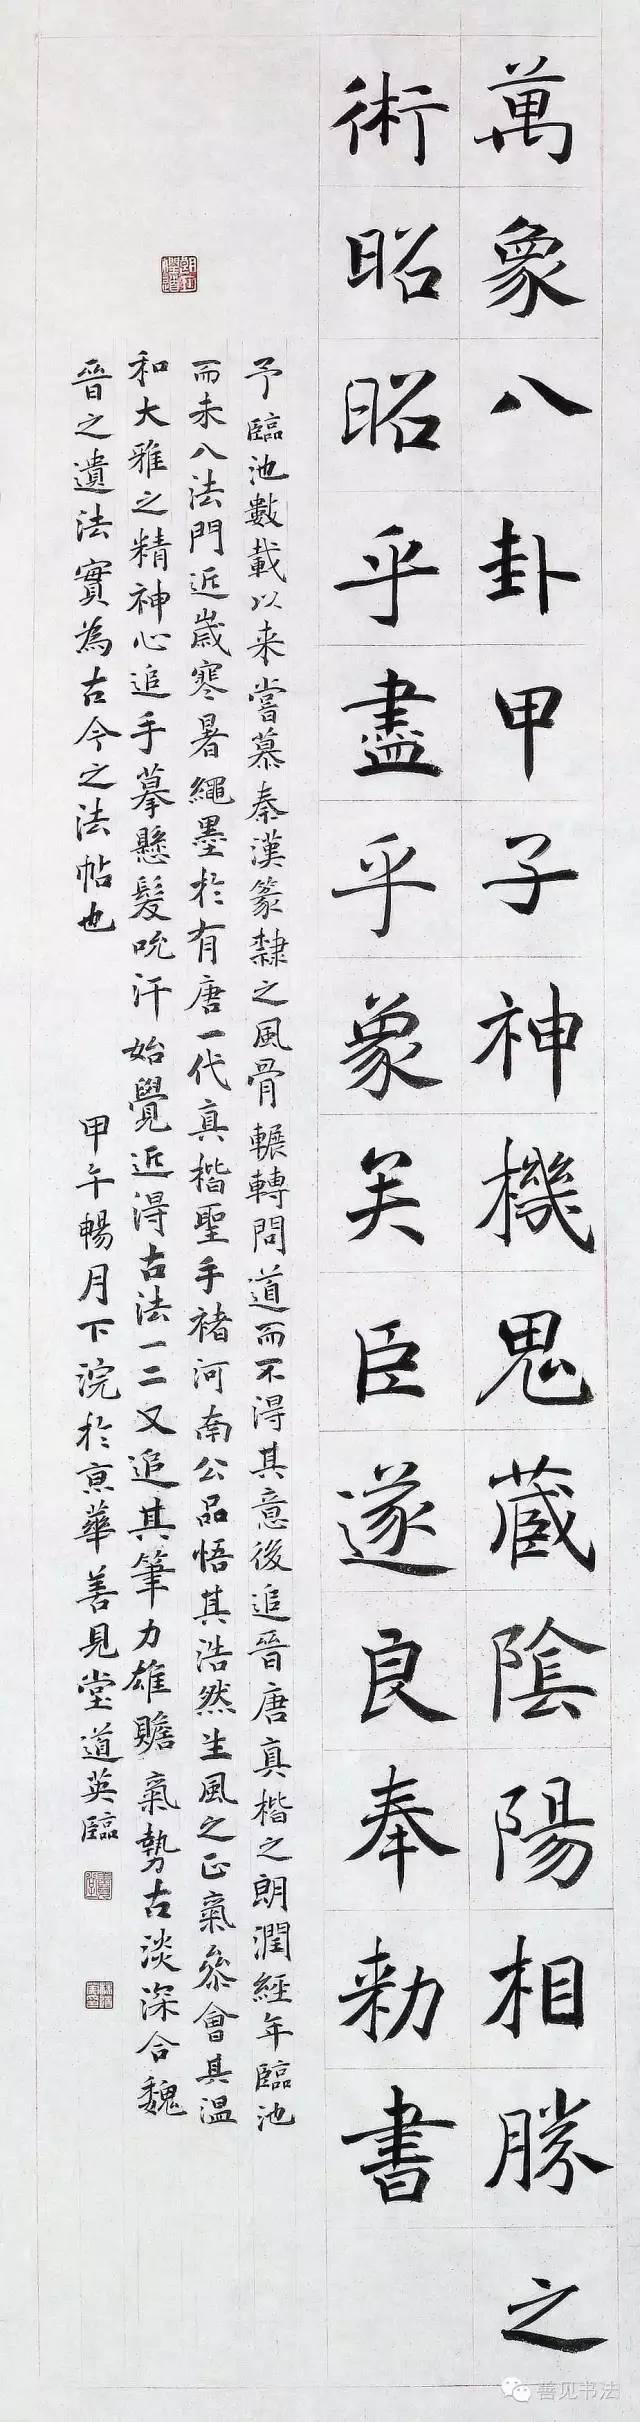 萬象八卦甲子神機鬼藏陰陽相勝之
術昭昭乎盡乎象矣臣遂良奉勅書
予臨池數載以来嘗慕秦漢篆隸之風骨輾轉問道而不得其意後追晉唐真楷之朗潤經年臨池
而未入法門近歲寒暑繩墨於有唐一代真楷聖手褚河南公品悟其浩然生風之正氣叅會其溫
和大雅之精神心追手摹懸髮吮汗始覺近得古法一二又追其筆力雄贍氣勢古淡深合魏
晉之遺法實為古今之法帖也
甲午暢月下浣於京華善見堂道英臨
善见书法